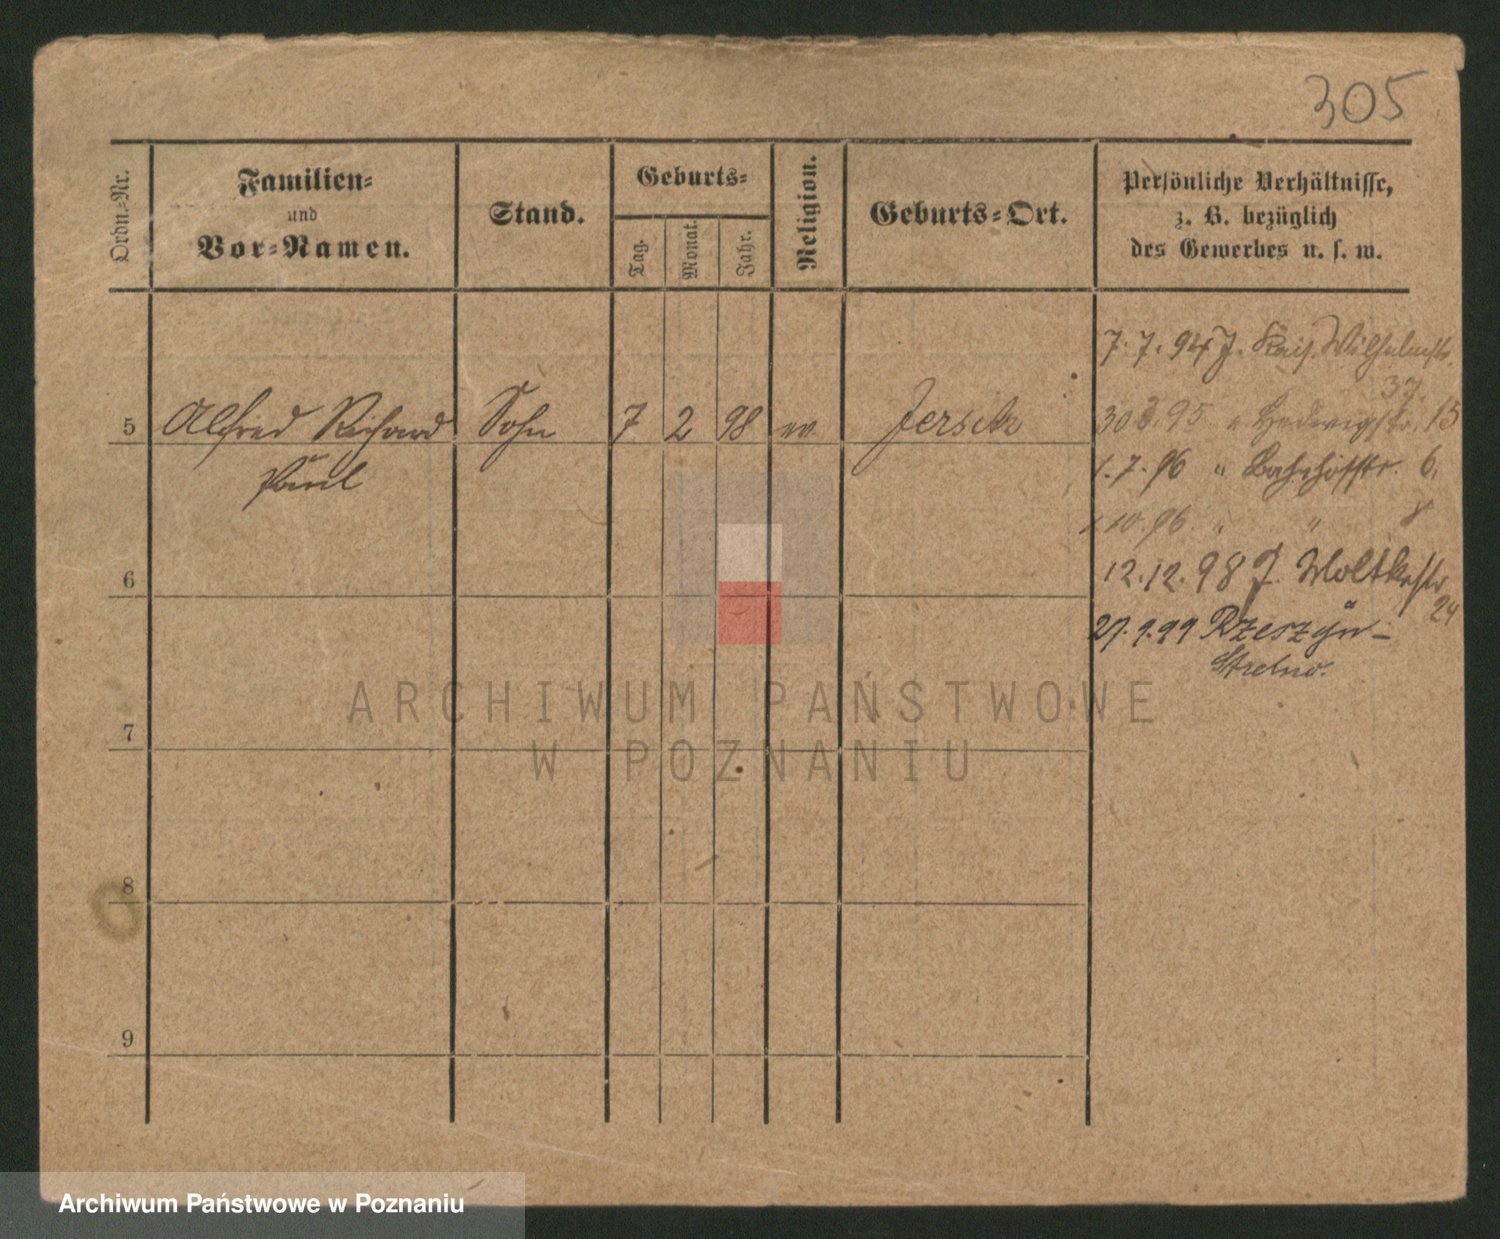 305
Ordn.-Nr.
Familien-
und
Vor-Namen.
Stand.
Geburts-
Tag.
Monat.
Jahr.
Religion.
Geburts-Ort.
Persönliche Verhältnisse,
z. B. bezüglich
des Gewerbes u. s. w.
7. 7. 94 J. Kais. Wilhelmstr.
37.
5 Alfred Richard Sohn 7 2 98 ev. Jersitz
Paul
95 " Hedwigstr. 15
1. 7. 96 " Bahnhofstr. 6.
1 10. 96. " " 8
6
12. 12. 98 J. Moltkestr
24
27. 9. 99 Rzeszyn-
Strelno.
ARCHIWUM PAŃSTWOWE
W POZNANIU
7
8
9
Archiwum Państwowe w Poznaniu